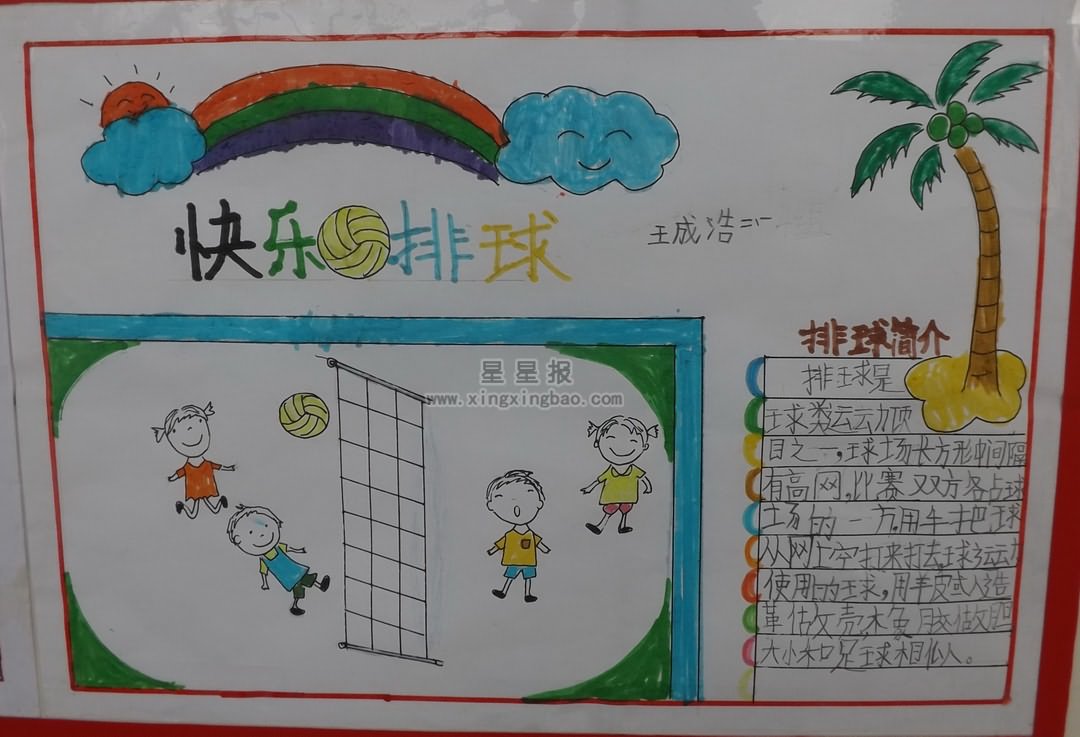 快乐排球
王成浩 二一
星星报
www.xingxingbao.com
排球简介
排球是
球类运动项
目之一,球场长方形中间隔
有高网,比赛双方各占球
场的一方用手把球
从网上空打来打去球运动
使用的球,用羊皮或人造
革做壳木兔胶做胆
大小和足球相似。